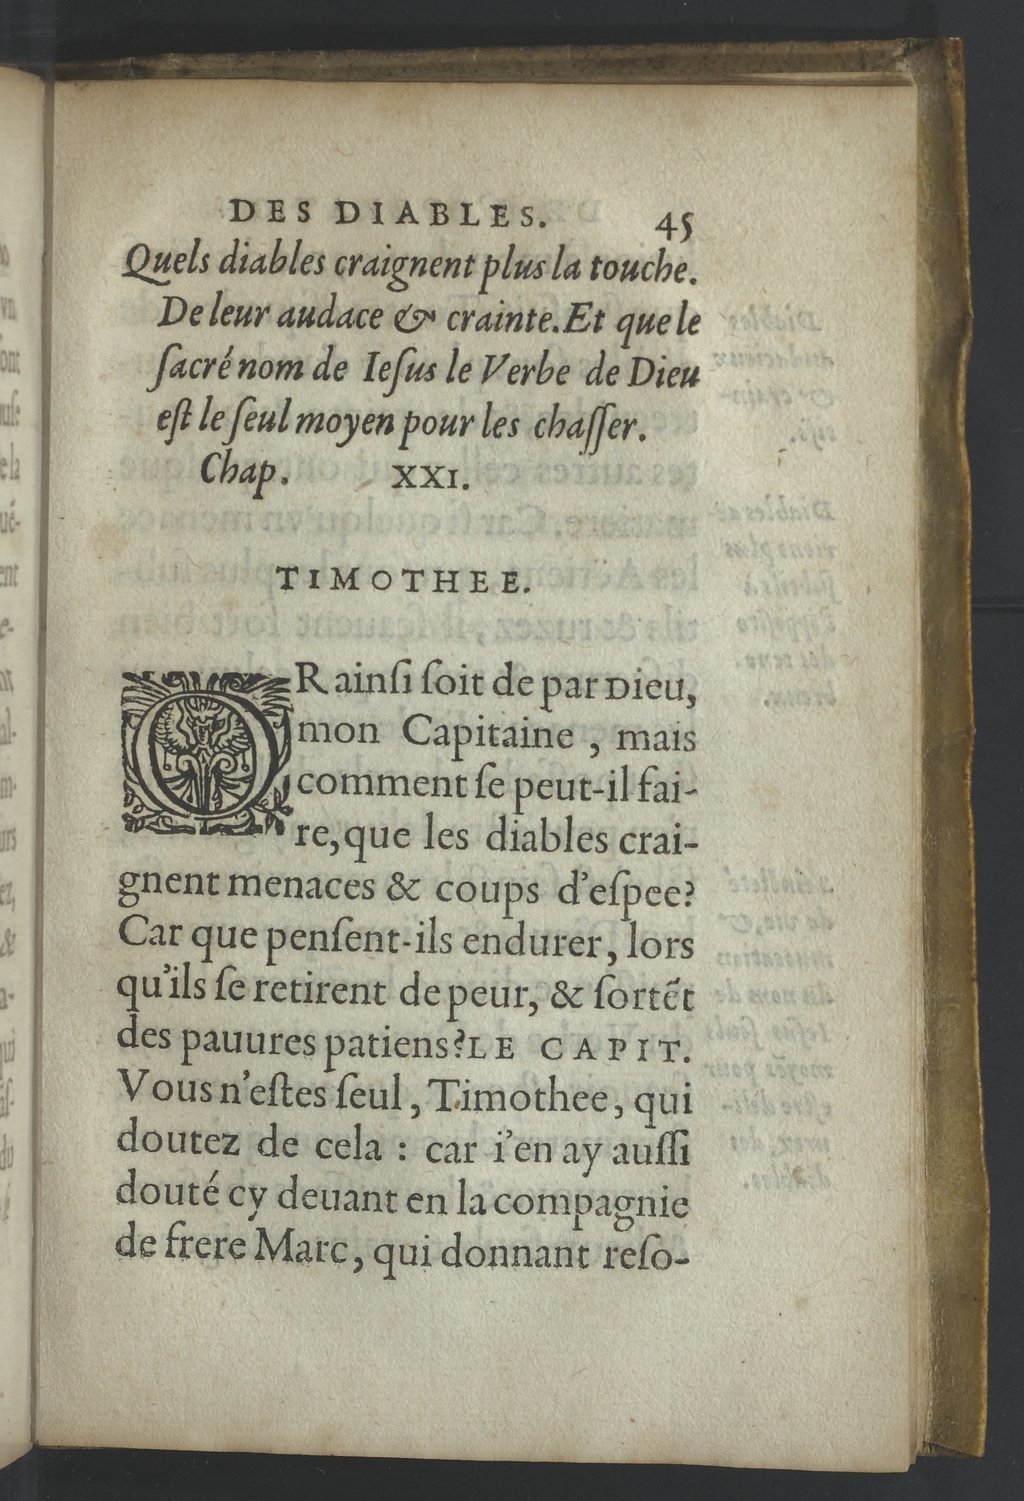 DES DIABLES. 45
Quels diables craignent plus la touche.
De leur audace & crainte. Et que le
ſacré nom de Ieſus le Verbe de Dieu
eſt le ſeul moyen pour les chaſſer.
Chap. XXI.
TIMOTHEE.
OR ainſi ſoit de par Dieu,
mon Capitaine, mais
comment ſe peut-il fai-
re, que les diables crai-
gnent menaces & coups d'eſpee?
Car que penſent-ils endurer, lors
qu'ils ſe retirent de peur, & ſortẽt
des pauures patiens? LE CAPIT.
Vous n'eſtes ſeul, Timothee, qui
doutez de cela : car i'en ay auſſi
douté cy deuant en la compagnie
de frere Marc, qui donnant reſo-